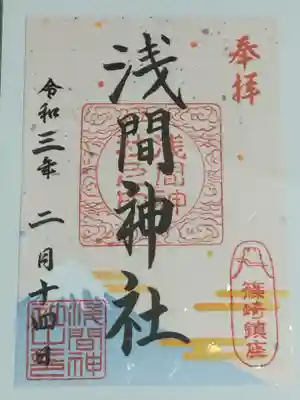 奉拝
篠崎鎮座
浅間神社
浅間神
令和三年二月十四日
浅間神